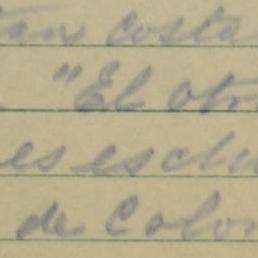 tan costa
"El otr
es esclu
de Colo